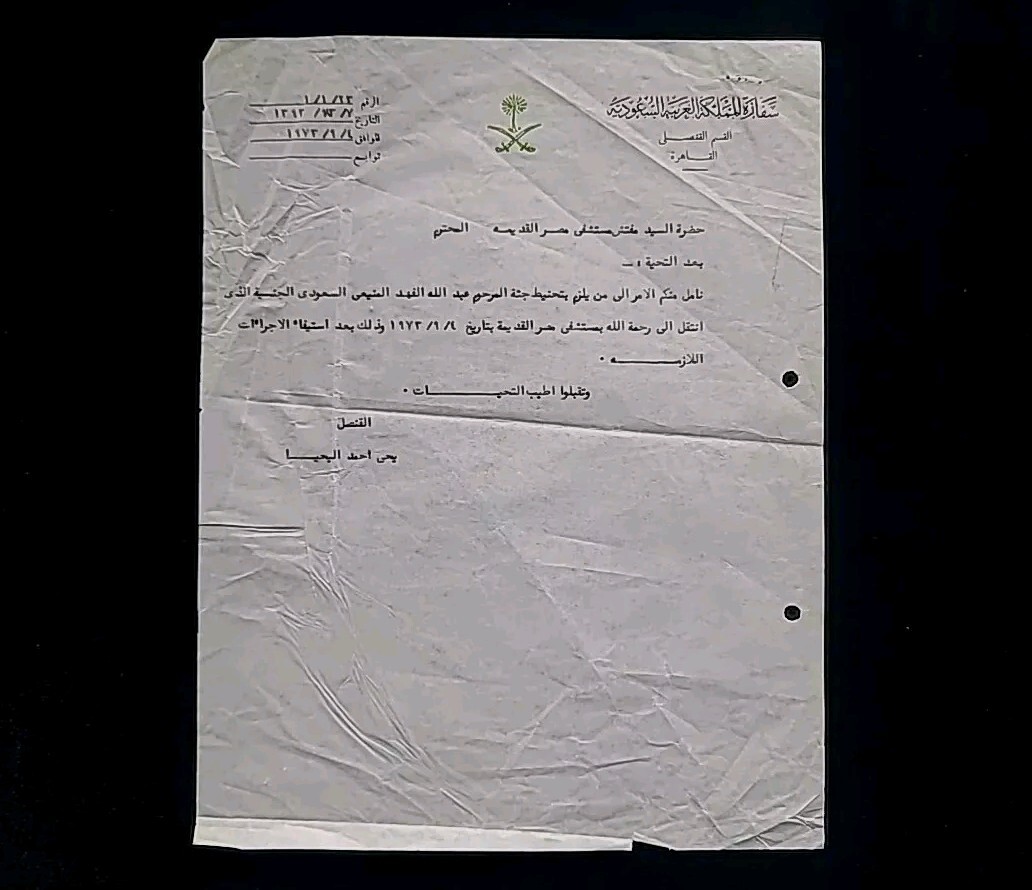 سفارة المملكة العربية السعودية
القسم القنصلى
القاهرة
الرقم ١/١/٢٣
التاريخ ١٣٩٣
الموافق ١٩٧٣/٩/٤
توابع
حضرة السيد مفتش مستشفى مصر القديمه المحترم
بعد التحية :ــ
نامل منكم الامر الى من يلزم بتحنيط جثة المرحوم عبد الله الفهد السعودى الجنسية الذى
انتقل الى رحمة الله بمستشفى مصر القديمة بتاريخ ١٩٧٣/٩/٤ وذلك بعد استيفاء الاجراءات
اللازمــــــــه .
وتقبلوا اطيب التحيــــــــات .
القنصل
يحى احمد اليحيــا